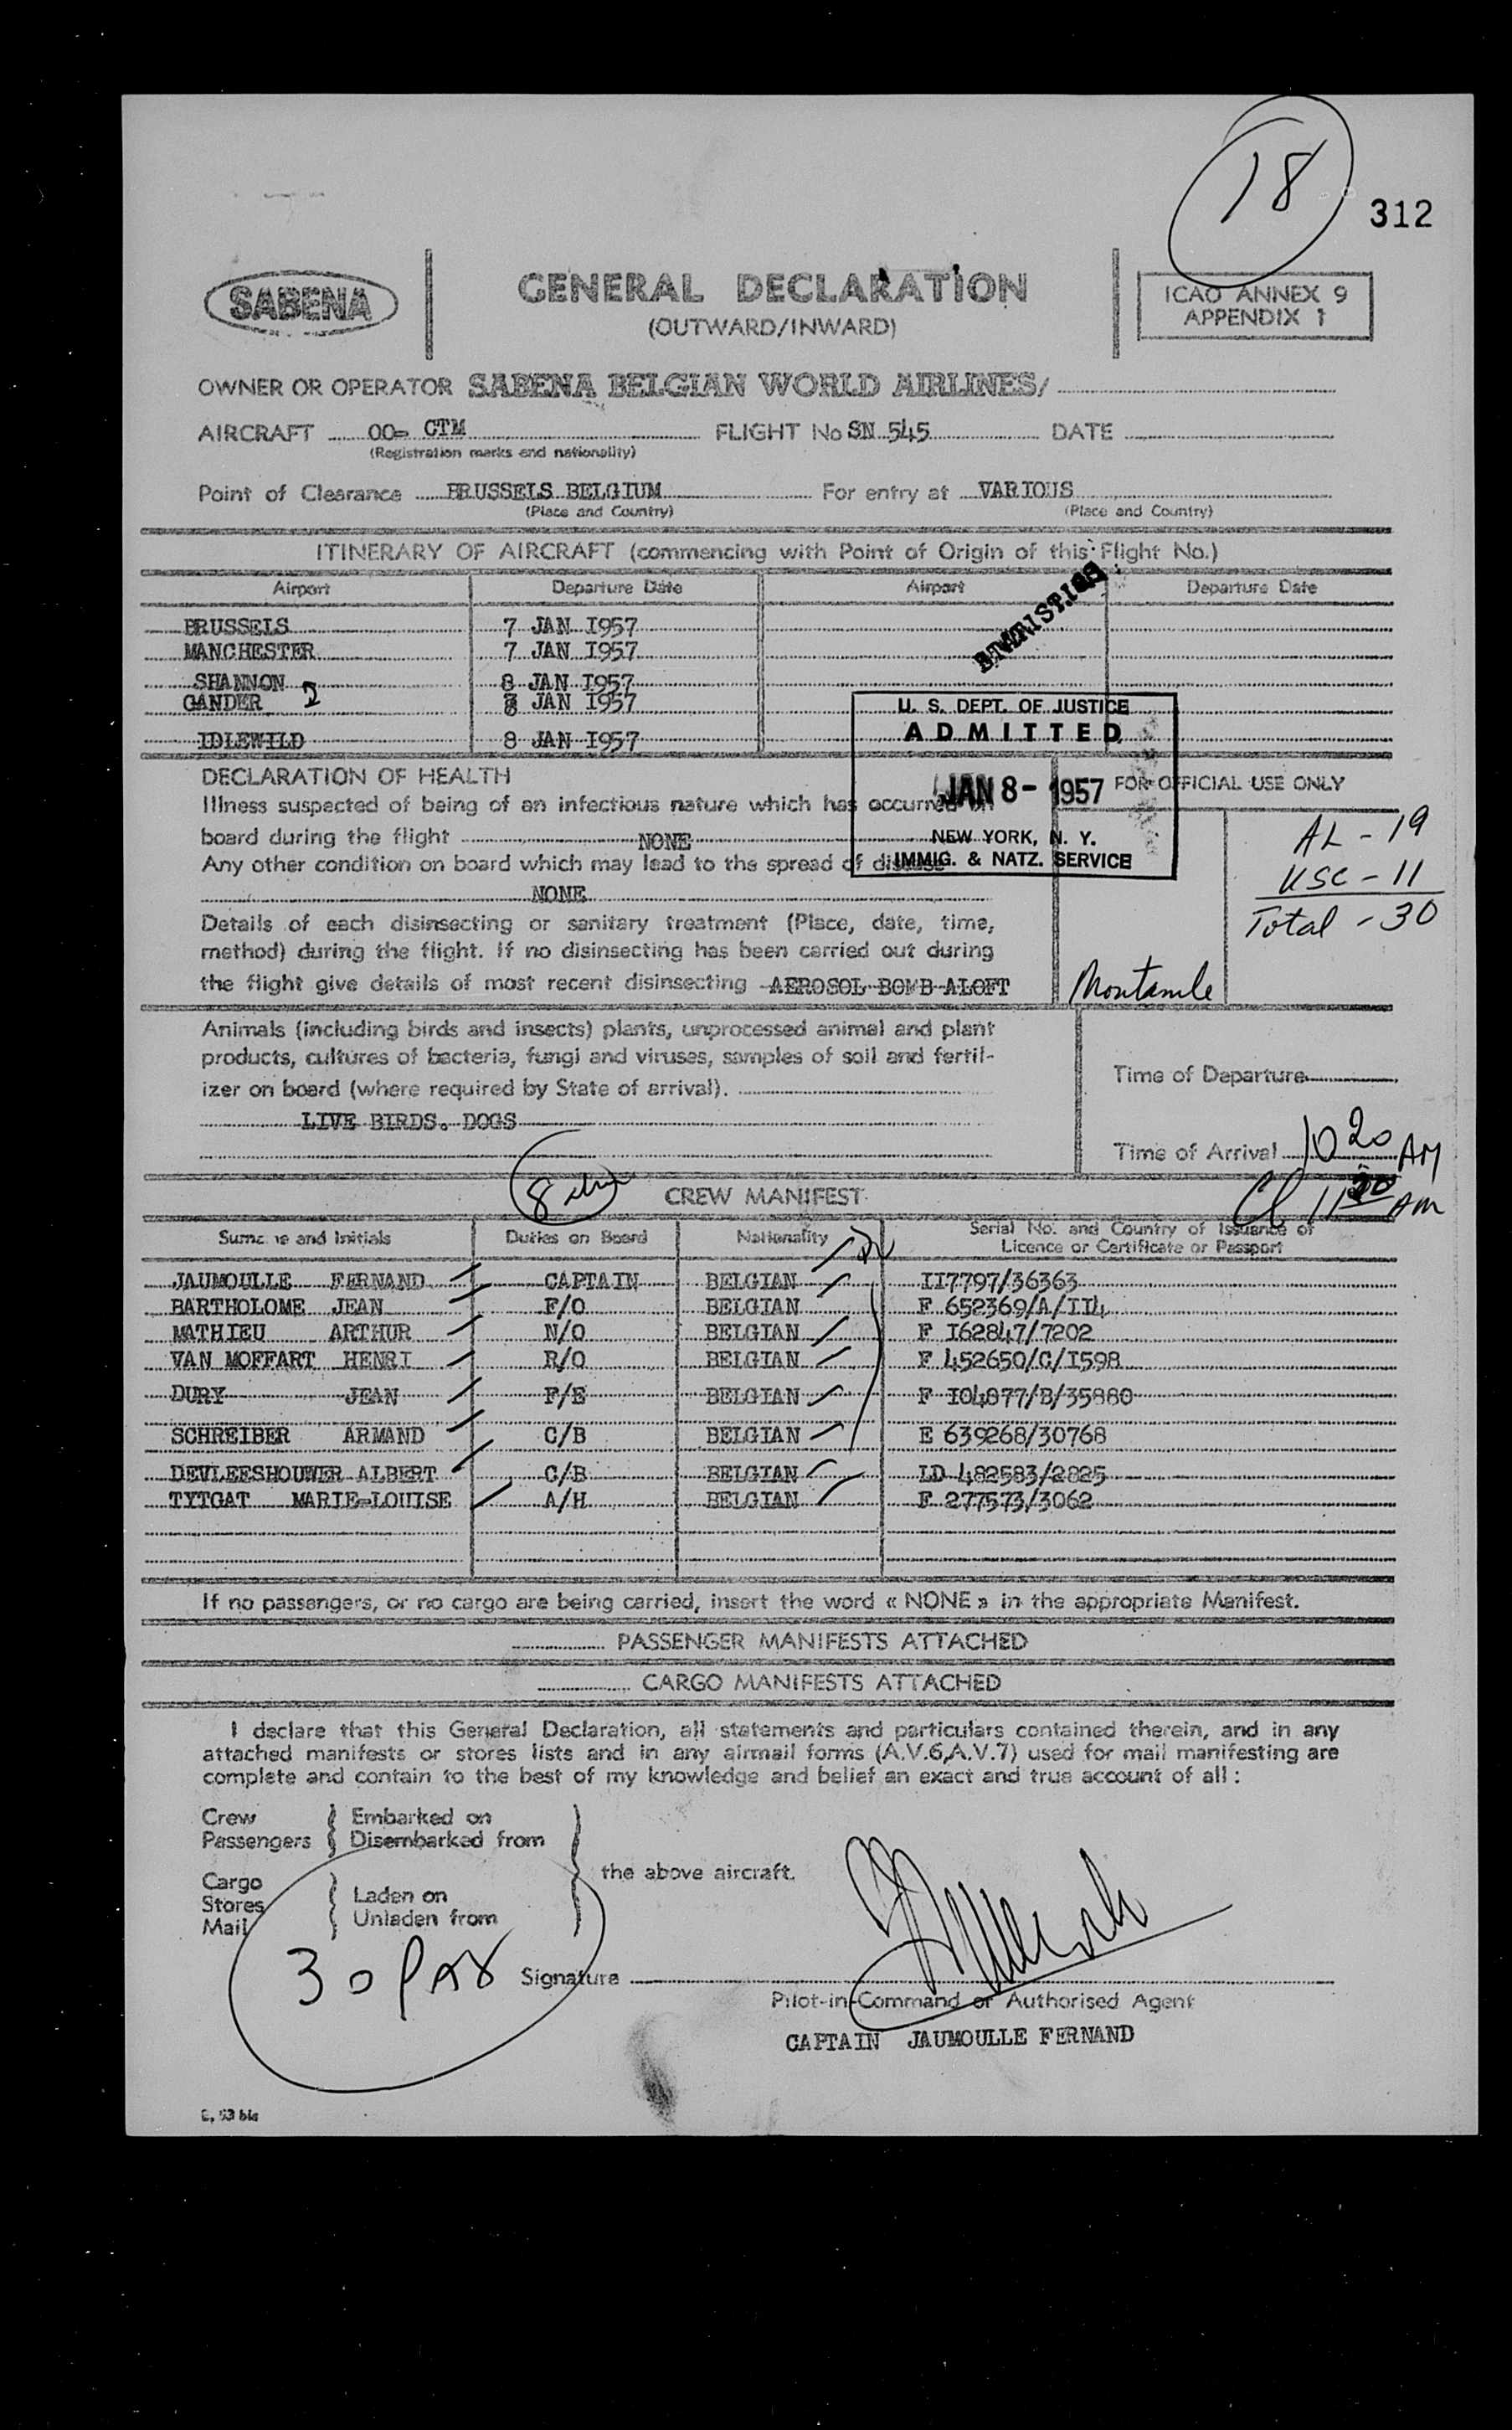 18
312
SABENA
GENERAL DECLARATION
(OUTWARD/INWARD)
ICAO ANNEX 9
APPENDIX 1
OWNER OR OPERATOR SABENA BELGIAN WORLD AIRLINES/
AIRCRAFT OO- CTM FLIGHT No SN 545 DATE
(Registration marks and nationality)
Point of Clearance BRUSSELS BELGIUM For entry at VARIOUS
(Place and Country) (Place and Country)
ITINERARY OF AIRCRAFT (commencing with Point of Origin of this Flight No.)
Airport Departure Date Airport Departure Date
BRUSSELS 7 JAN I957
MANCHESTER 7 JAN I957
SHANNON 8 JAN I957
GANDER 8 JAN I957
IDLEWILD 8 JAN I957
U. S. DEPT. OF JUSTICE
ADMITTED
JAN 8- 1957
NEW YORK, N. Y.
IMMIG. & NATZ. SERVICE
DECLARATION OF HEALTH
FOR OFFICIAL USE ONLY
Illness suspected of being of an infectious nature which has occurred on
board during the flight NONE
Any other condition on board which may lead to the spread of disease
NONE
AL - 19
USC - 11
Total - 30
Details of each disinsecting or sanitary treatment (Place, date, time,
method) during the flight. If no disinsecting has been carried out during
the flight give details of most recent disinsecting AEROSOL BOMB ALOFT
Animals (including birds and insects) plants, unprocessed animal and plant
products, cultures of bacteria, fungi and viruses, samples of soil and fertil-
izer on board (where required by State of arrival).
LIVE BIRDS. DOGS
Time of Departure
Time of Arrival 10 20 AM
11 AM
8
CREW MANIFEST
Surname and Initials Duties on Board Nationality Serial No. and Country of Issuance of
Licence or Certificate or Passport
JAUMOULLE FERNAND CAPTAIN BELGIAN II7797/36363
BARTHOLOME JEAN F/O BELGIAN F 652369/A/II4
MATHIEU ARTHUR N/O BELGIAN F I62847/7202
VAN MOFFART HENRI R/O BELGIAN F 452650/C/I598
DURY JEAN F/E BELGIAN F I04877/B/35880
SCHREIBER ARMAND C/B BELGIAN E 639268/30768
DEVLEESHOUWER ALBERT C/B BELGIAN LD 482583/2825
TYTGAT MARIE-LOUISE A/H BELGIAN F 277573/3062
If no passengers, or no cargo are being carried, insert the word « NONE » in the appropriate Manifest.
PASSENGER MANIFESTS ATTACHED
CARGO MANIFESTS ATTACHED
I declare that this General Declaration, all statements and particulars contained therein, and in any
attached manifests or stores lists and in any airmail forms (A.V.6,A.V.7) used for mail manifesting are
complete and contain to the best of my knowledge and belief an exact and true account of all :
Crew
Passengers
Embarked on
Disembarked from
the above aircraft.
Cargo
Stores
Mail
Laden on
Unladen from
30 PAX
Signature
Pilot-in-Command or Authorised Agent
CAPTAIN JAUMOULLE FERNAND